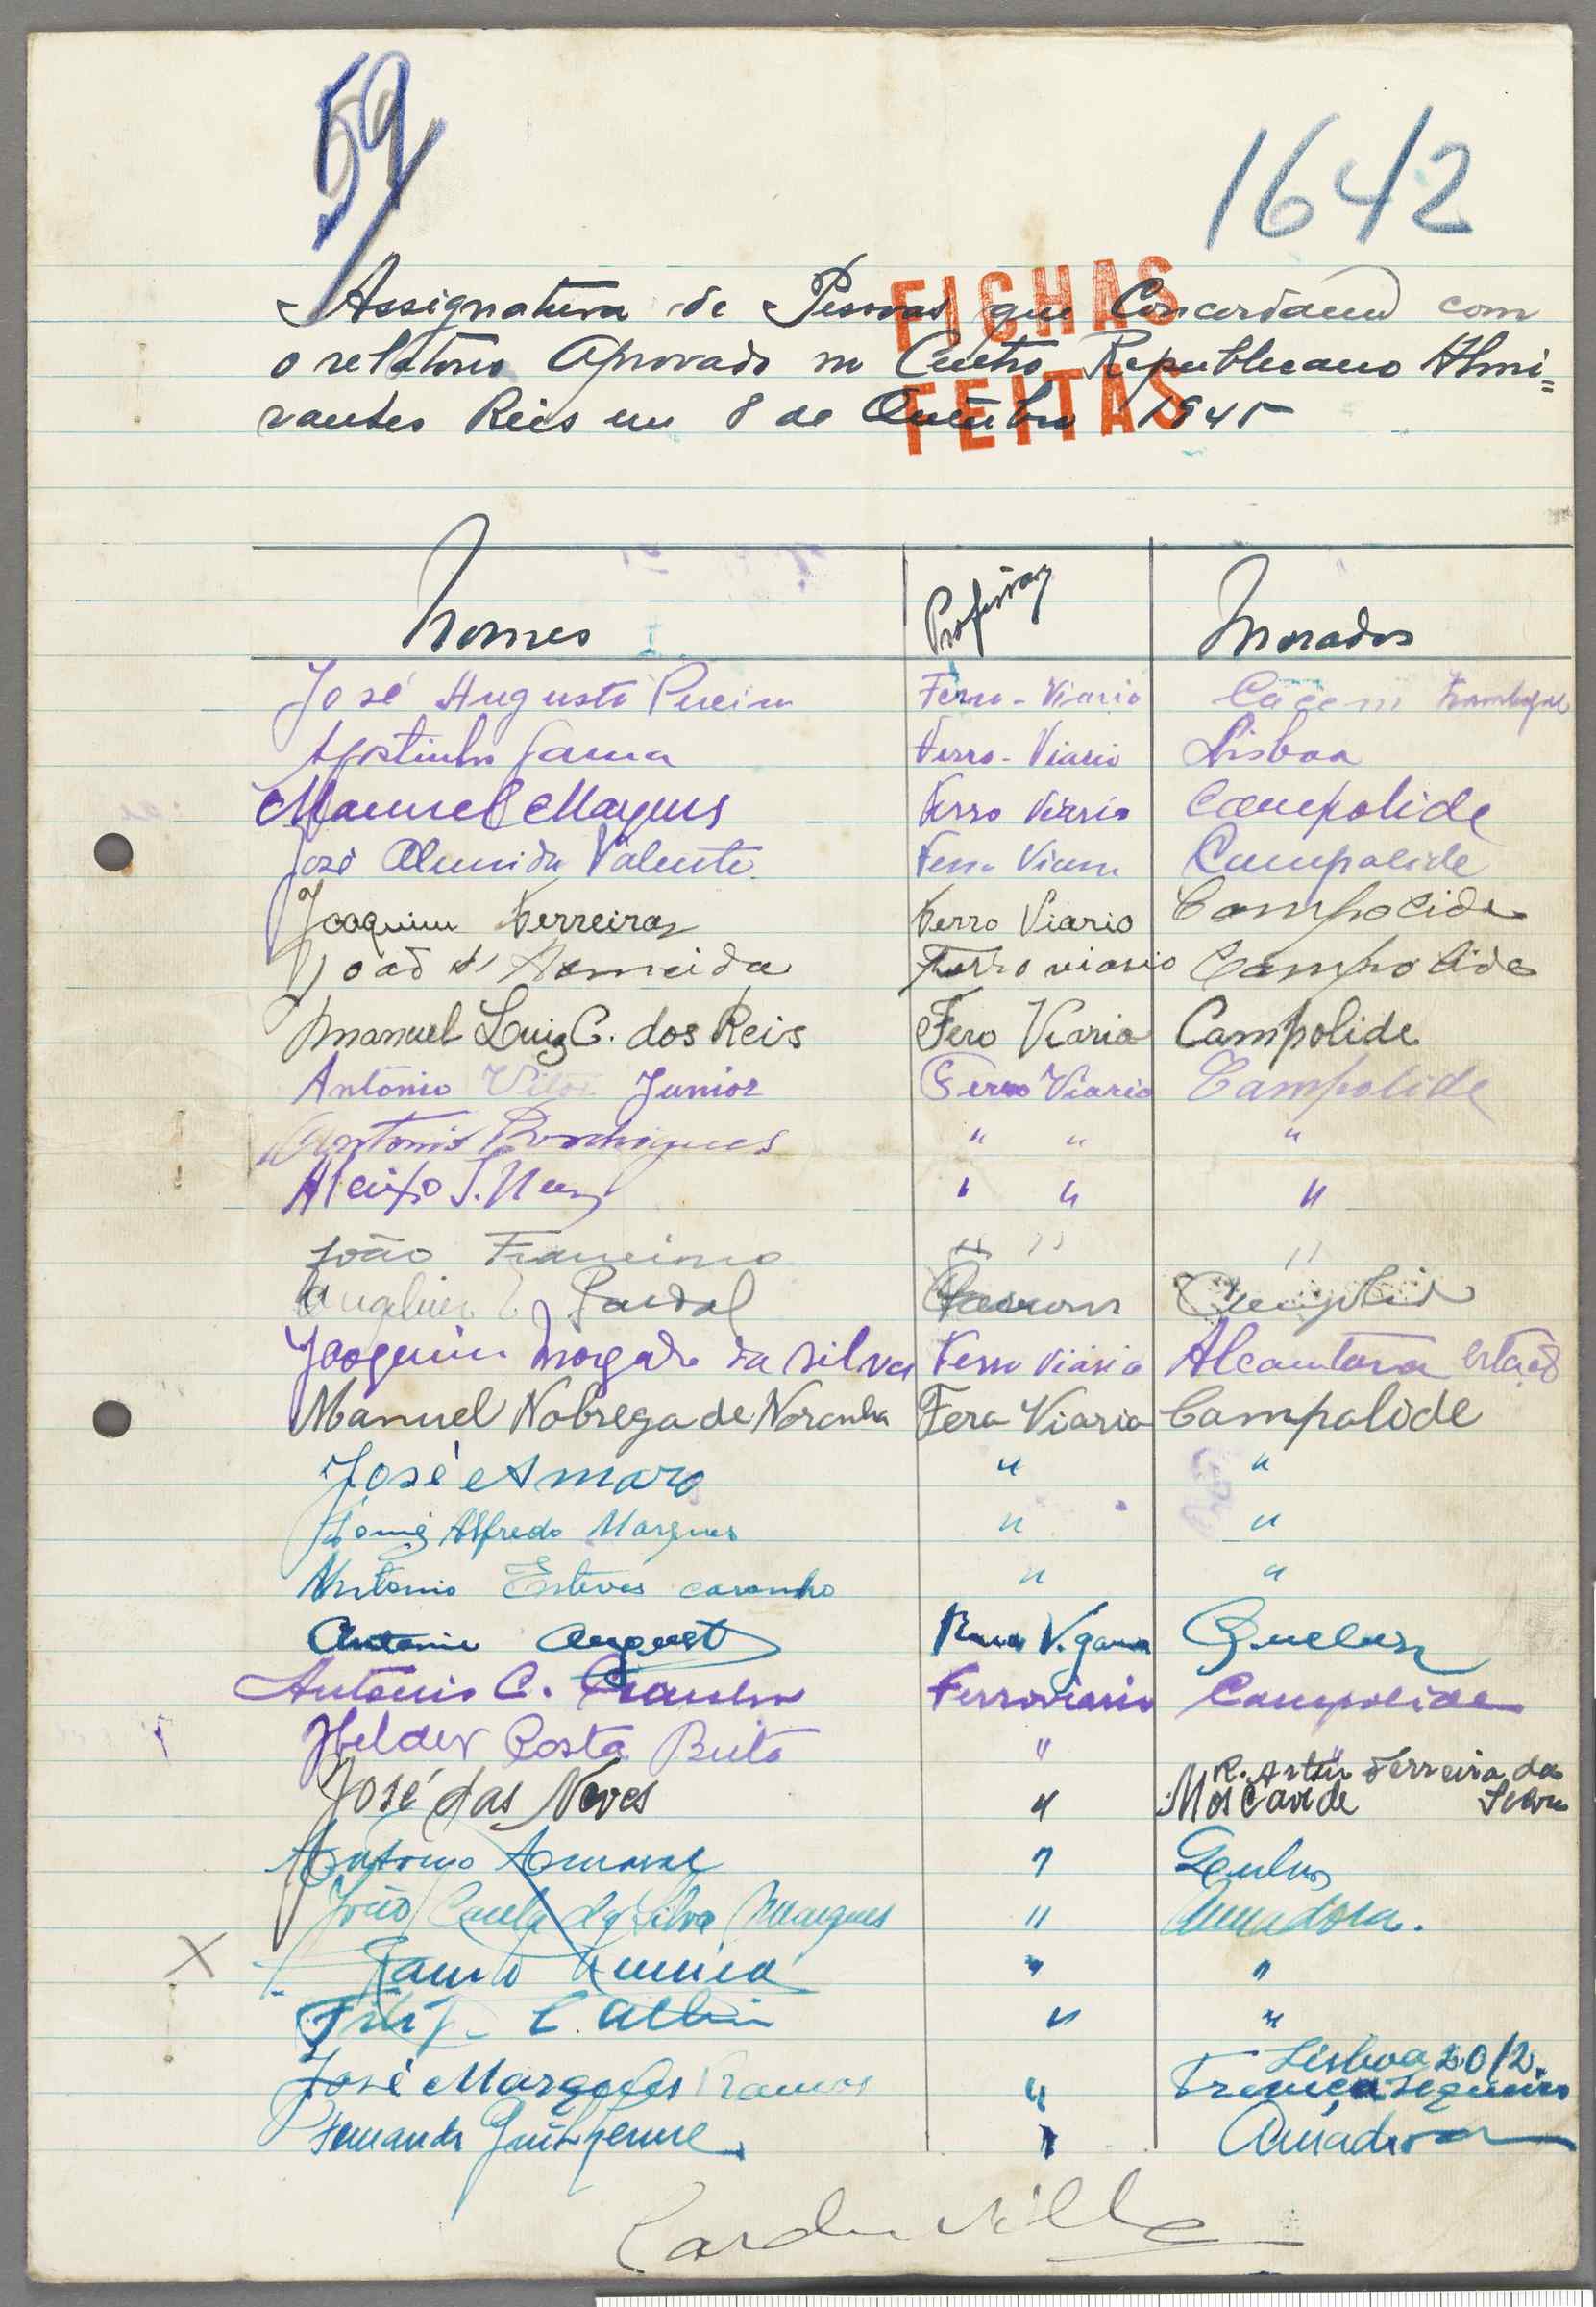 59
1642
FICHAS
FEITAS
Assignatura de Pessoas que Concordam com
o relatorio Aprovado no Centro Republicano Almi=
rantes Reis em 8 de Outubro 1945
Nomes Profissão Moradas
José Augusto Pereira Ferro-Viario Cacem
Agostinho Gama Ferro-Viario Lisboa
Manuel Marques Ferro Viario Campolide
José Almeida Valente Ferro Viario Campolide
Joaquim Ferreira Ferro Viario Campolide
João d'Almeida Ferro viario Campolide
Manuel Luiz C. dos Reis Fero Viario Campolide
António Vitor Junior Ferro Viario Campolide
Antonio Rodrigues " " "
Aleixo S. " " "
João Francisco " " "
Pardal
Joaquim Morgado da Silva Ferro Viario Alcantara estação
Manuel Nobrega de Noronha Fero Viario Campolide
José Amaro " "
Alfredo Marques " "
Antonio Esteves " "
Antonio Augusto Queluz
Antonio C. Ferroviario Campolide
Helder Costa Brito " "
José das Neves " R. Artur Ferreira da Silva
Moscavide
Antonio Amaral "
João da Silva Marques " Amadora.
" "
" "
José Marques Ramos " Lisboa
Fernando Guilherme " Amadora